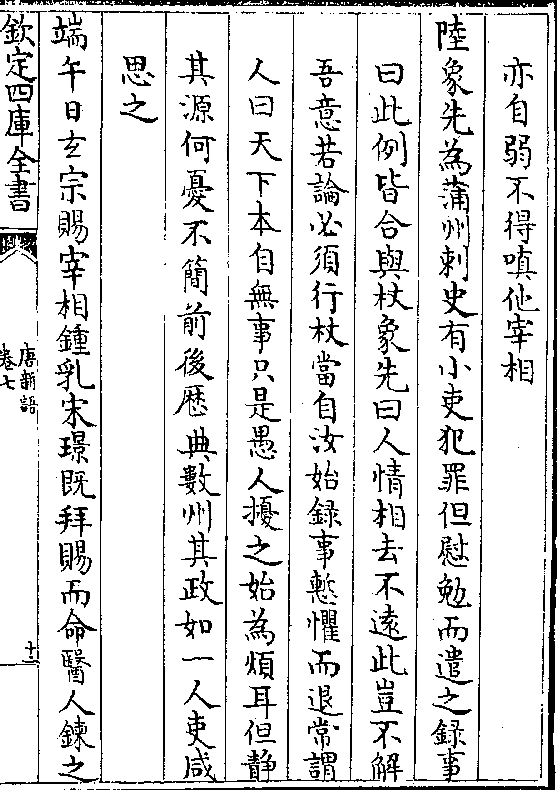 亦自弱不得嗔他宰相
陸象先為蒲州刺史有小吏犯罪但慰勉而遣之録事
曰此例皆合與杖象先曰人情相去不遠此豈不解
吾意若論必須行杖當自汝始録事慙懼而退常謂
人曰天下本自無事只是愚人擾之始為煩耳但静
其源何憂不簡前後歴典數州其政如一人吏咸
思之
端午日玄宗賜宰相鍾乳宋璟既拜賜而命醫人鍊之
欽定四庫全書
唐新語
卷七
十二